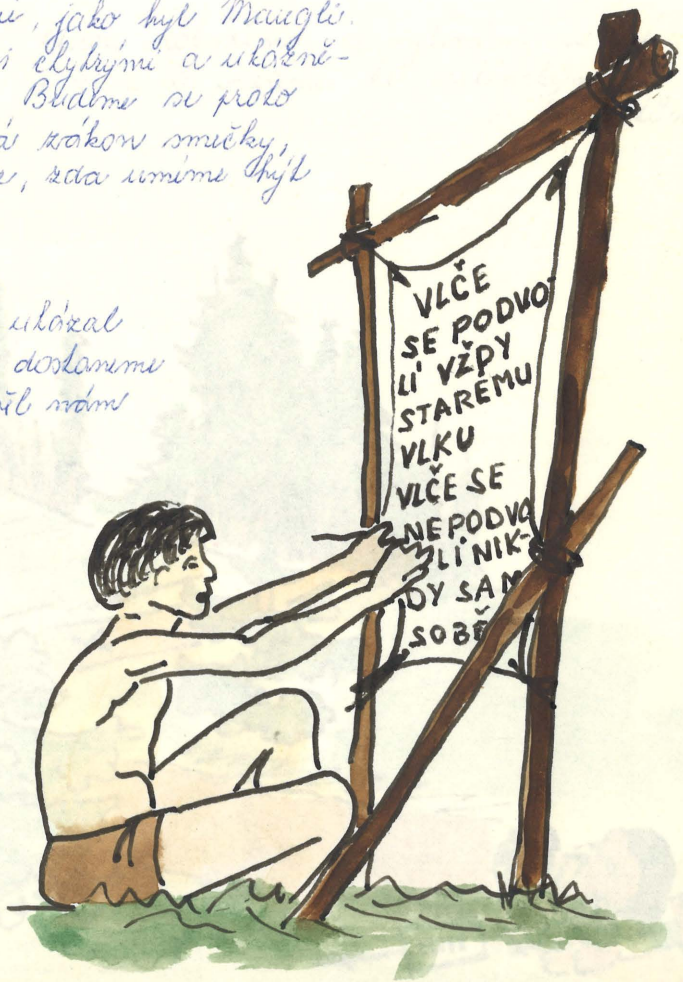 jako byl Mauglí.
chytrými a ukázně-
Budeme se proto
zákon smečky,
zda umíme být
ukázal
dostaneme
nám
VLČE
SE PODVO-
LÍ VŽDY
STARÉMU
VLKU
VLČE SE
NEPODVO
LÍ NIK-
DY SAM
SOBĚ